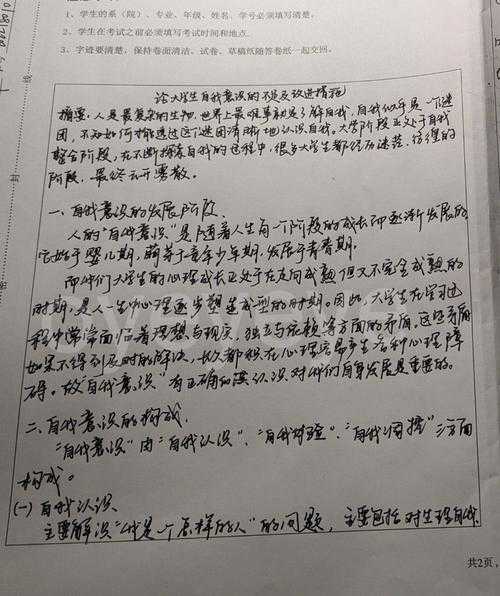 1、学生的系(院)、专业、年级、姓名、学号必须填写清楚。
2、学生在考试之前必须填写考试时间和地点.
3、字迹要清楚,保持卷面清洁、试卷、草稿纸随答卷纸一起交回。
论大学生自我意识的不足及改进措施
摘要:人是最复杂的生物,世界上最难事就是了解自我,自我似乎是一个谜
团,不知如何才能透过这个迷团清晰地认识自我。大学阶段正处于自我
整合阶段,在不断探索自我的过程中,很多大学生都经历迷茫、彷徨的
阶段,最终云开雾散。
一、自我意识的发展阶段.
人的"自我意识"是随着人生每一个阶段的成长而逐渐发展的
它始于婴儿期,萌芽于童年少年期,发展于青春期。
而我们大学生的心理成长正处于在走向成熟但又不完全成熟的
时期,是人一生中心理逐步塑造成型的时期。因此,大学生在学习过
程中常常面临着理想与现实,独立与依赖等方面的矛盾。这些矛盾
如果不得到及时的解决,长久都积在心理容易产生各种心理障
碍。故"自我意识"有正确的认识对我们自身发展是重要的。
二、自我意识的构成.
"自我意识"由"自我认识"、"自我体验"、"自我调控"三方面
构成。
(一)自我认识
主要解决"我是一个怎样的人"的问题,主要包括对生理自我.
共2页,